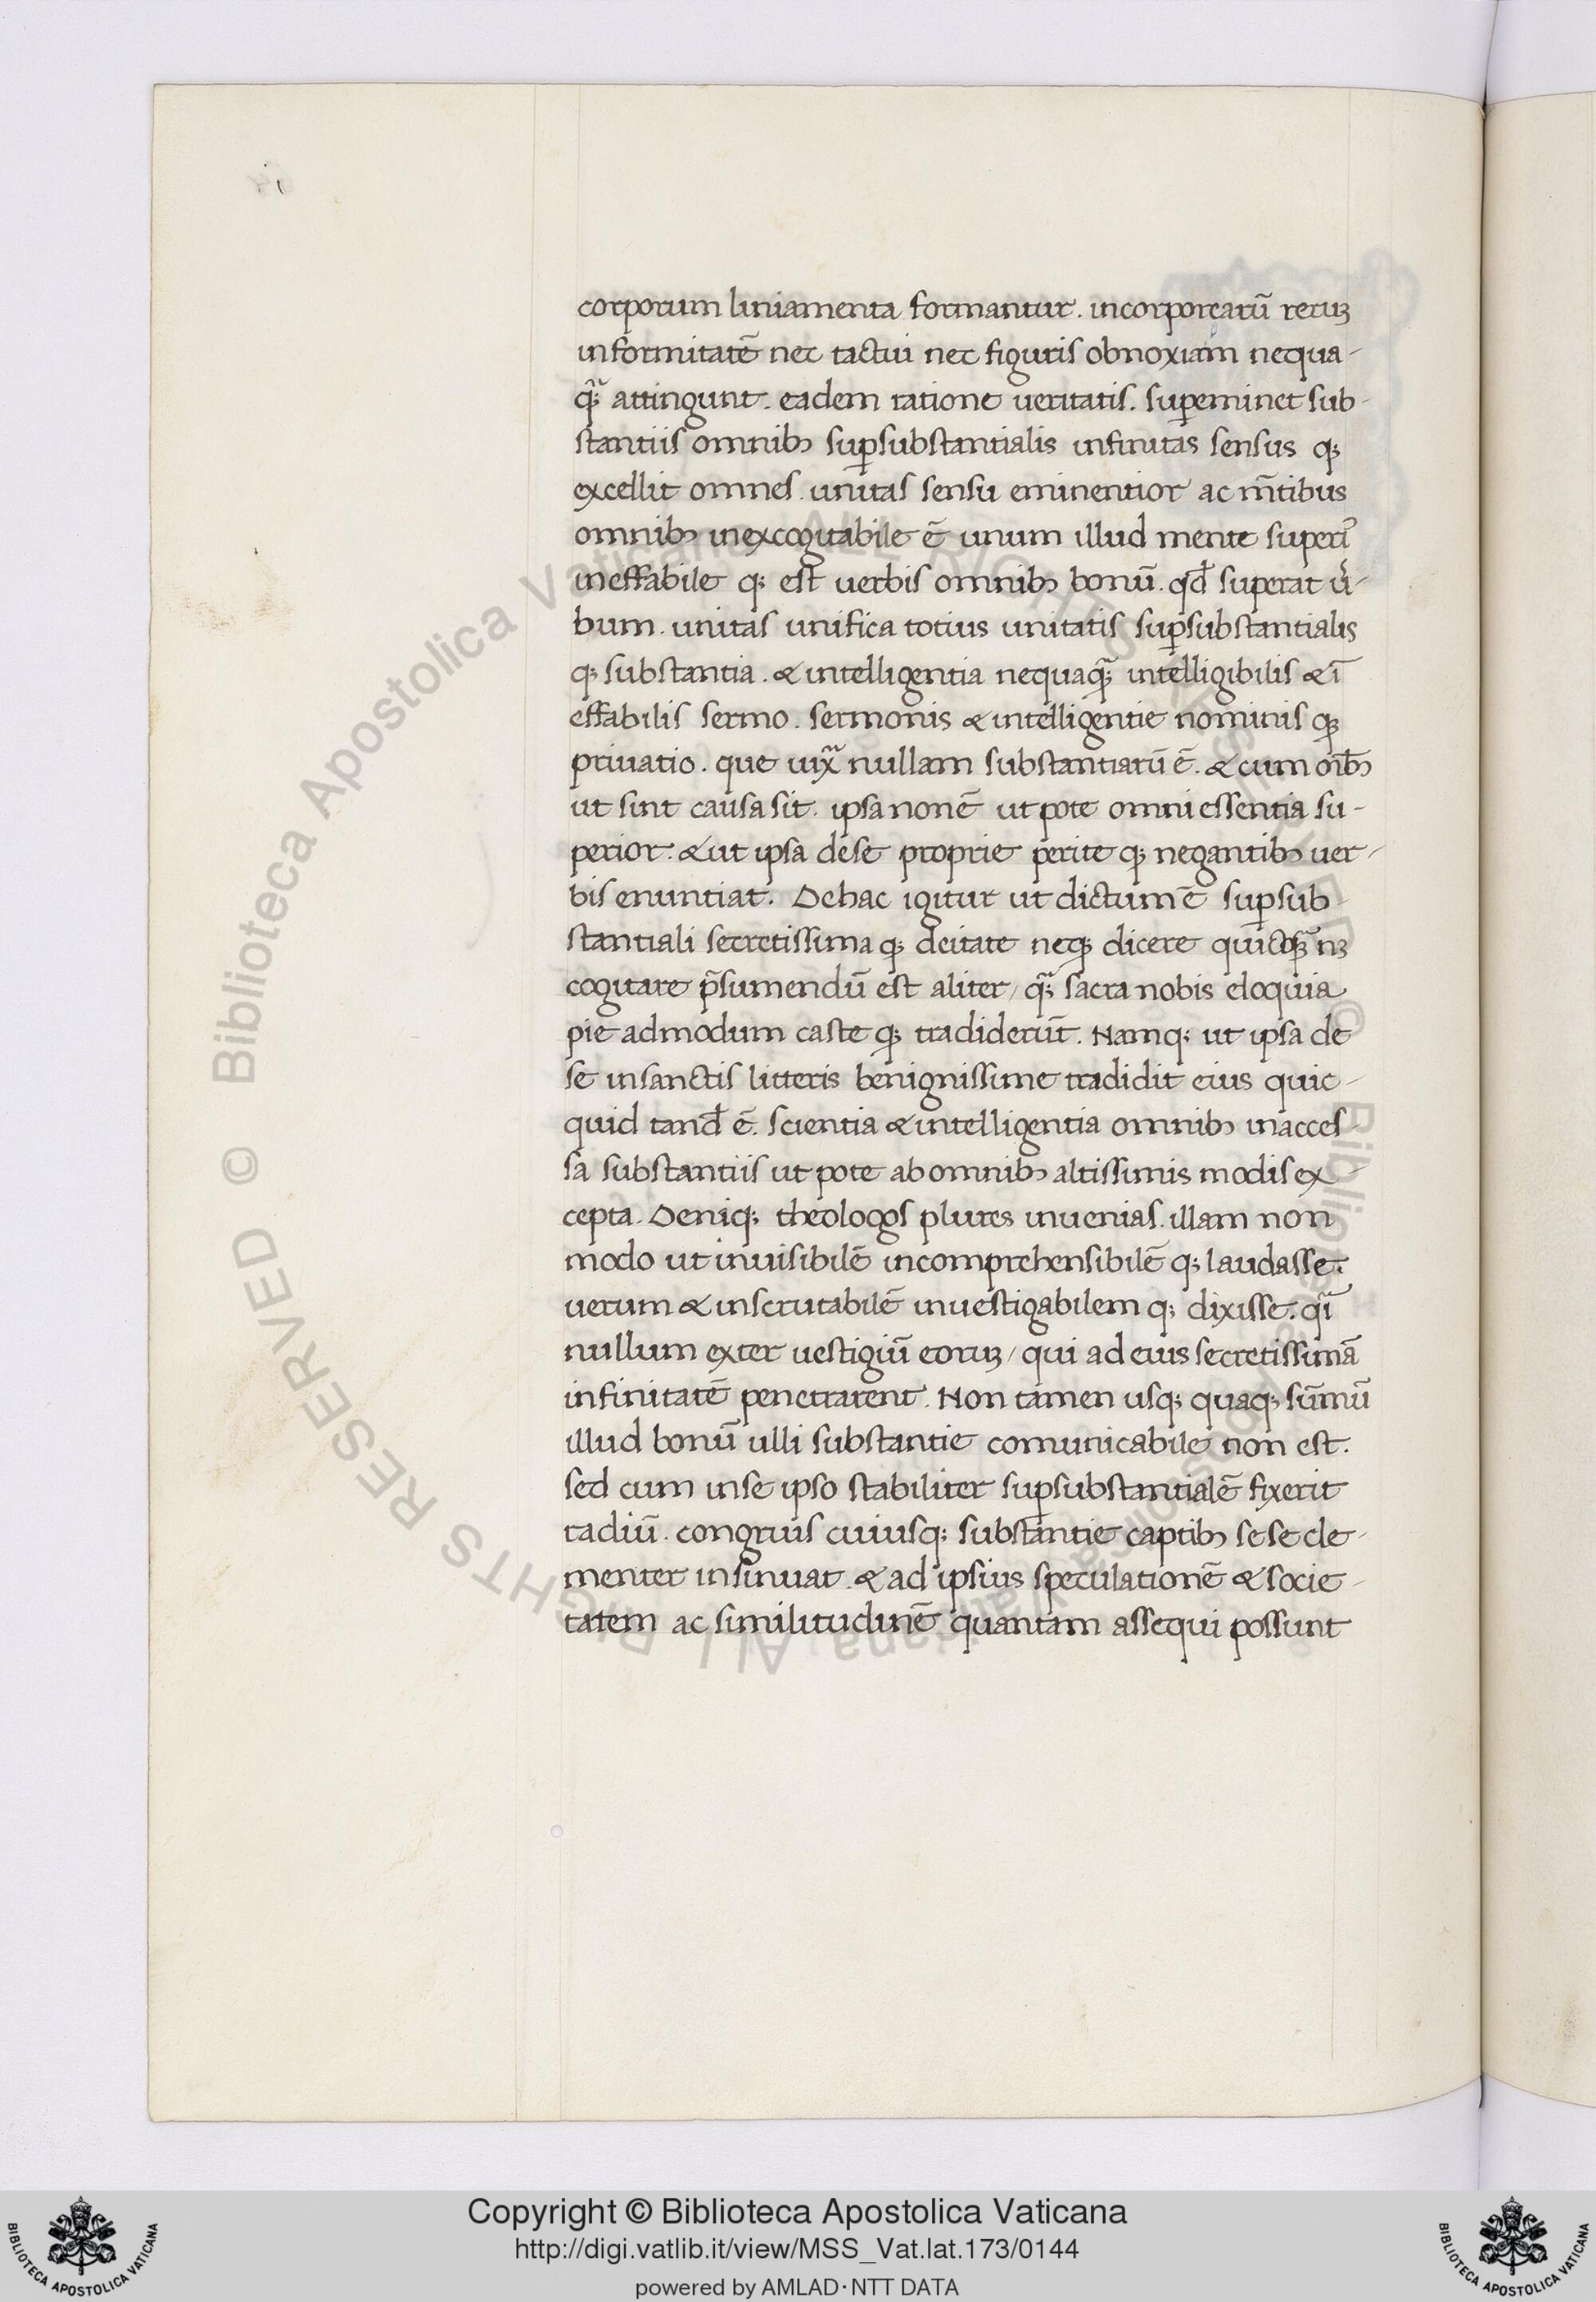 corporum liniamenta formantur. incorporearū rerūꝫ
informitatē nec tactui nec figuris obnoxiam nequa-
qͣꝫ attingunt. eadem ratione ueritatis. suꝑeminet sub-
stantiis omnibꝫ suꝑsubstantialis infinitas sensus qꝫ
excellit omnes. unitas sensu eminentior ac m̄tibus
omnibꝫ inexcogitabile ē unum illud mente superi᷒
ineffabile qꝫ est uerbis omnibꝫ bonū. qđ superat u̾-
bum. unitas unifica totius unitatis suꝑsubstantialis
qꝫ substantia. & intelligentia nequaqͣꝫ intelligibilis & ī
effabilis sermo. sermonis & intelligentie nominis qꝫ
priuatio. que iuxͣ nullam substantiarū ē. & cum oībꝫ
ut sint causa sit. ipsa non ē ut pote omni essentia su-
perior. & ut ipsa de se proprie perite qꝫ negantibꝫ uer-
bis enuntiat. De hac igitur ut dictum ē suꝑsub
stantiali secretissima qꝫ deitate neqꝫ dicere
cogitare p̄sumendū est aliter/ qͣꝫ sacra nobis eloquia
pie admodum caste qꝫ tradiderūt. Namqꝫ ut ipsa de
se in sanctis litteris benignissime tradidit eius quic-
quid tanđ ē. scientia & intelligentia omnibꝫ inacces-
sa substantiis ut pote ab omnibꝫ altissimis modis ex-
cepta. Deniqꝫ theologos plures inuenias. illam non
modo ut inuisibilē incomprehensibilē qꝫ laudasse.
uerum & inscrutabilē inuestigabilem qꝫ dixisse. qī
nullum exter uestigiū eorūꝫ/ qui ad eius secretissimā
infinitatē penetrarent. Non tamen usqꝫ quaqꝫ sūmū
illud bonū ulli substantie comunicabile non est.
sed cum in se ipso stabiliter suꝑsubstantialē fixerit
radiū. congruis cuiusqꝫ substantie captibꝫ sese cle-
menter insinuat. & ad ipsius speculationē & socie-
tatem ac similitudinē quantam assequi possunt
© Biblioteca Apostolica Vaticana ALL RIGHTS RESERVED
Copyright © Biblioteca Apostolica Vaticana
http://digi.vatlib.it/view/MSS_Vat.lat.173/0144
powered by AMLAD·NTT DATA
BIBLIOTECA APOSTOLICA VATICANA
BIBLIOTECA APOSTOLICA VATICANA